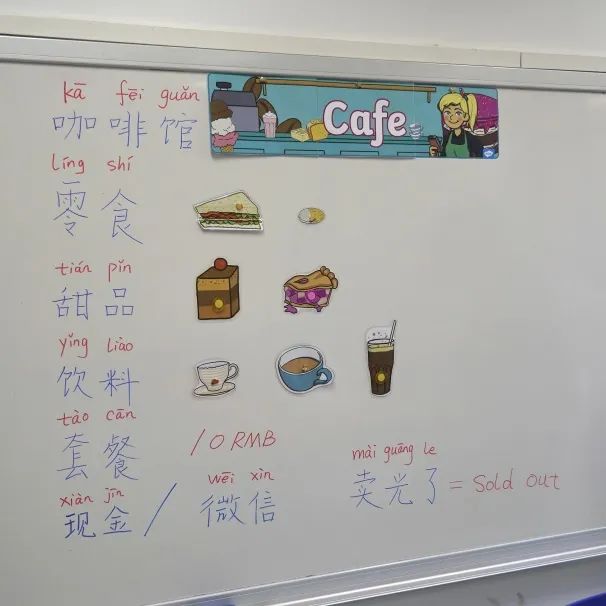 kā fēi guǎn
咖啡馆
Cafe
líng shí
零食
tián pǐn
甜品
yǐng liào
饮料
tào cān
套餐
10 RMB
xiàn jīn
现金 /
wēi xìn
微信
mài guāng le
卖光了 = Sold out